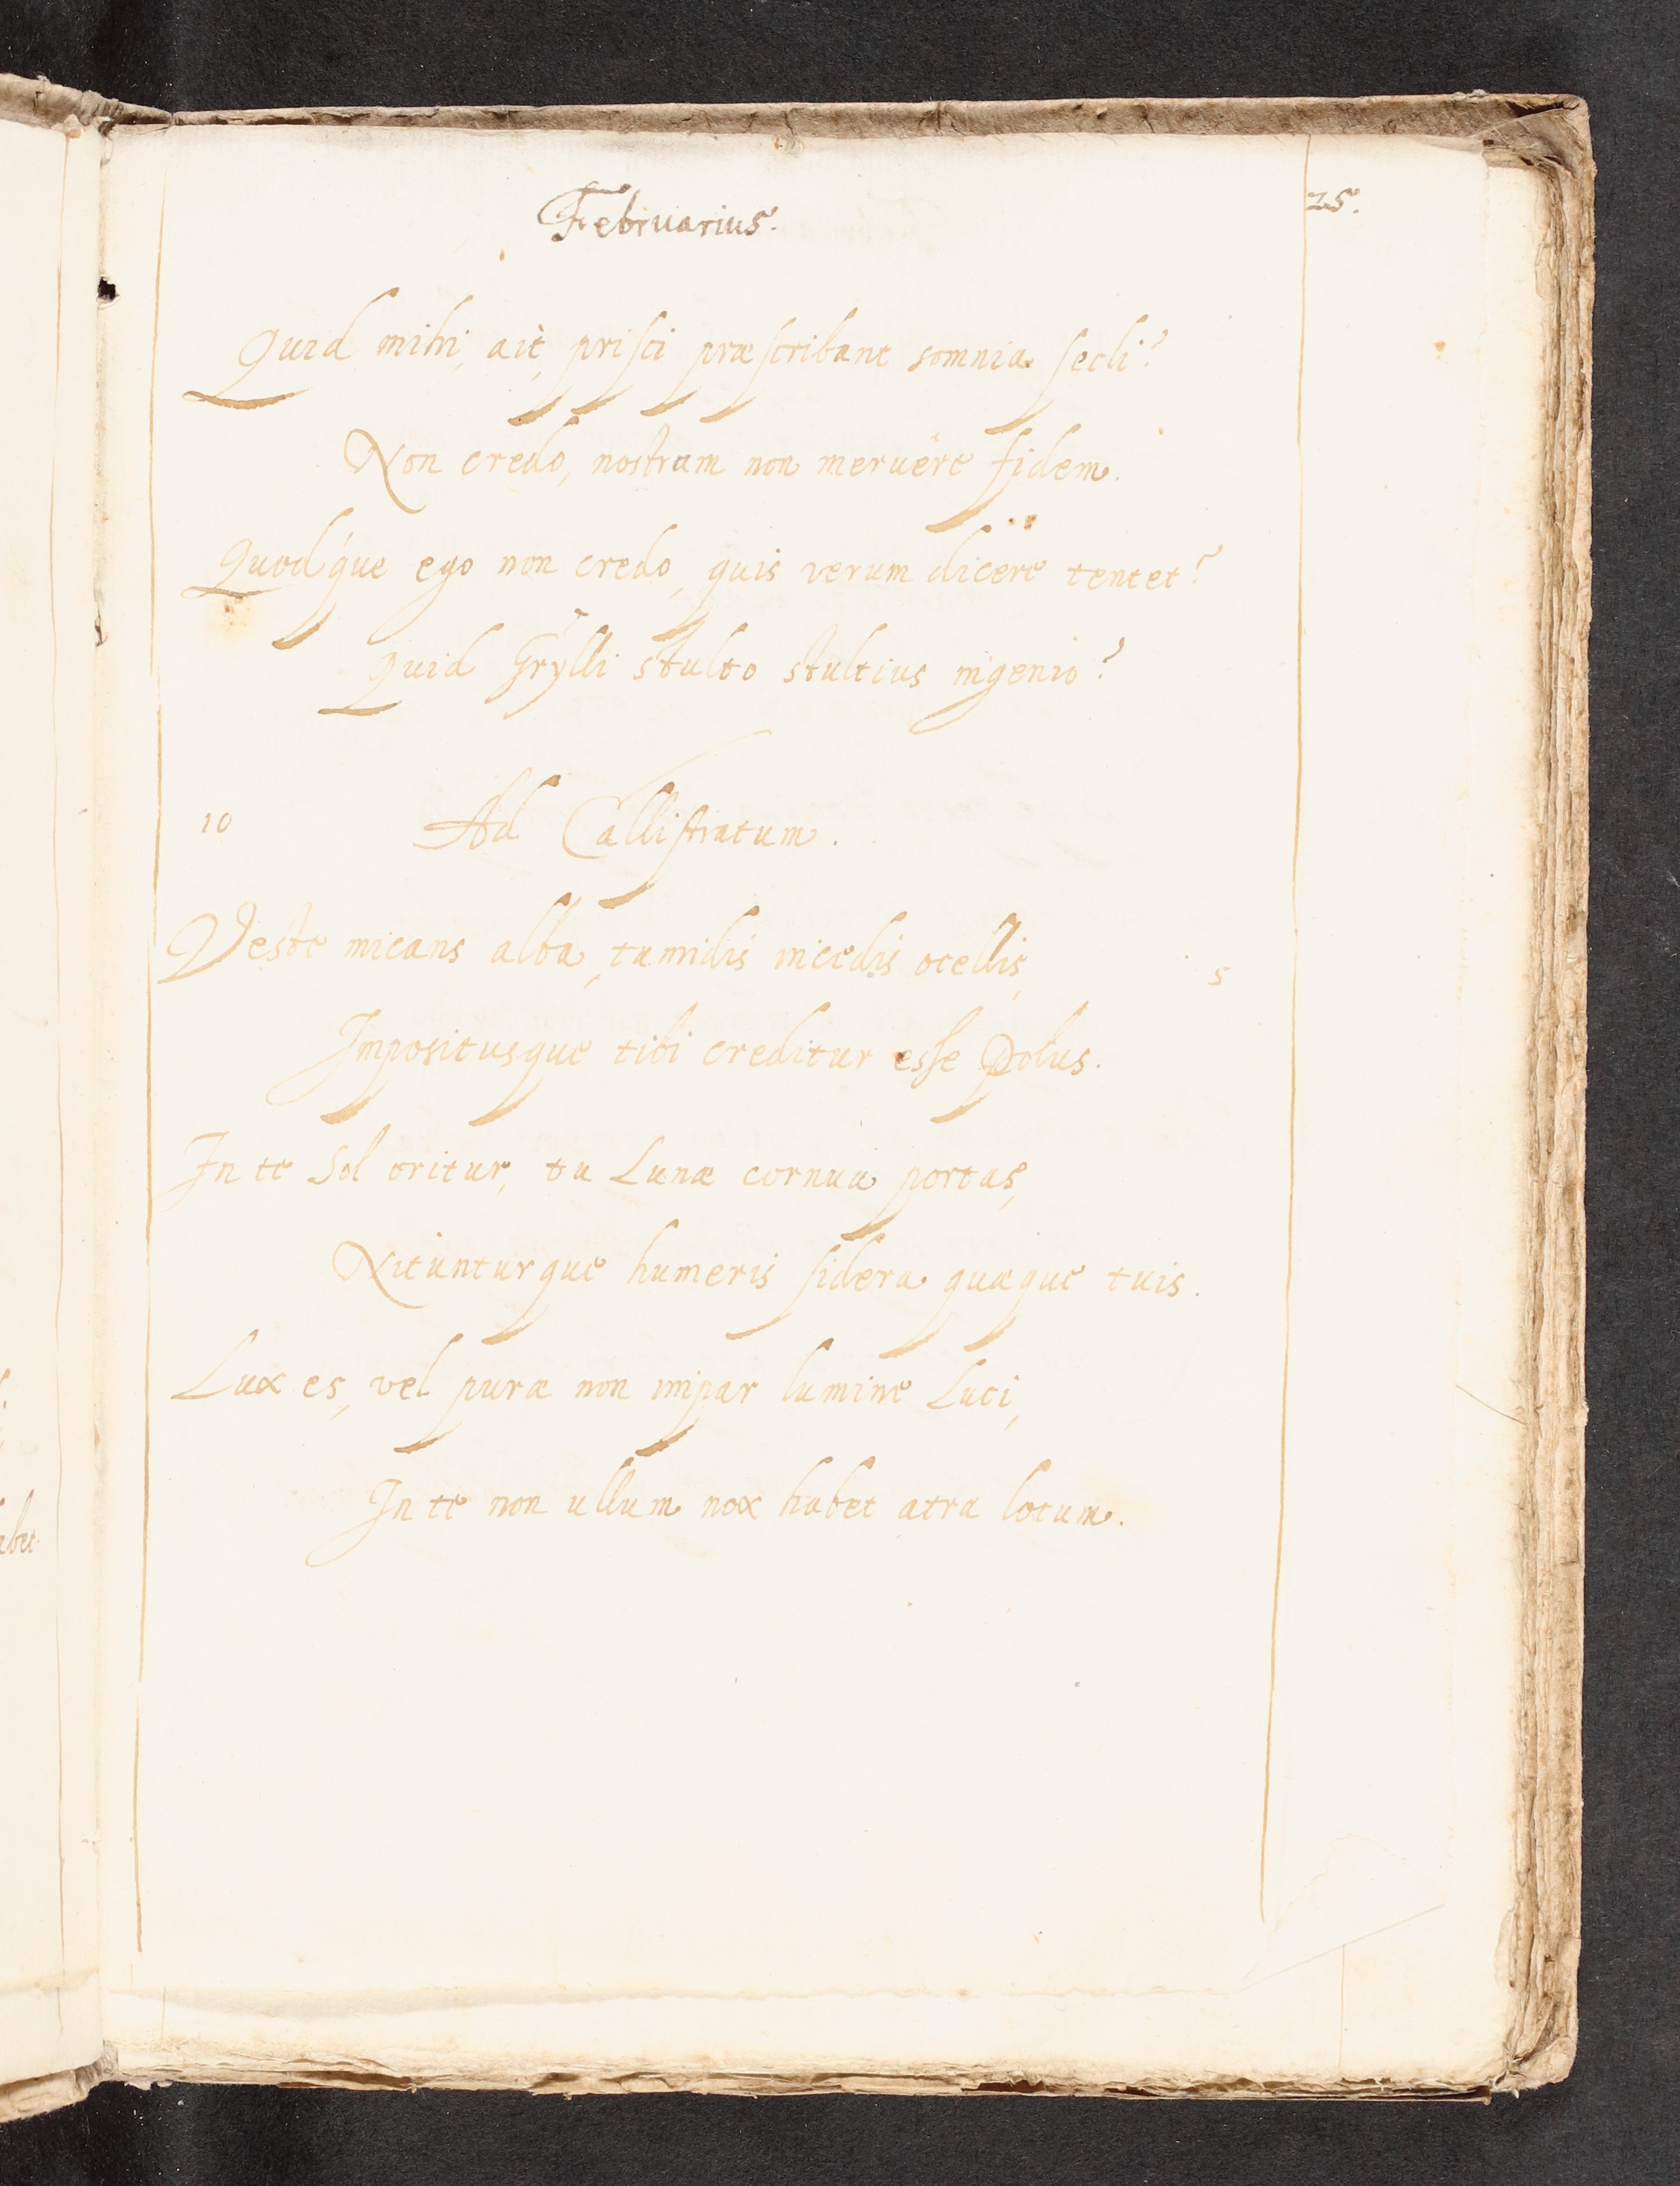 Februarius.
25.
Quid mihi, ait, prisci præscribant somnia secli?
Non credo, nostram non meruêre fidem.
Quodque ego non credo, quis verum dicere tentet?
Quid Grylli stulto stultius ingenio?
10 Ad Callistratum.
Veste micans alba, tumidis incedis ocellis, 5
Impositusque tibi creditur esse Polus.
In te Sol oritur, tu Lunæ cornua portas,
Nituntur que humeris sidera quæque tuis.
Lux es, vel puræ non impar lumine Luci,
In te non ullum nox habet atra locum.